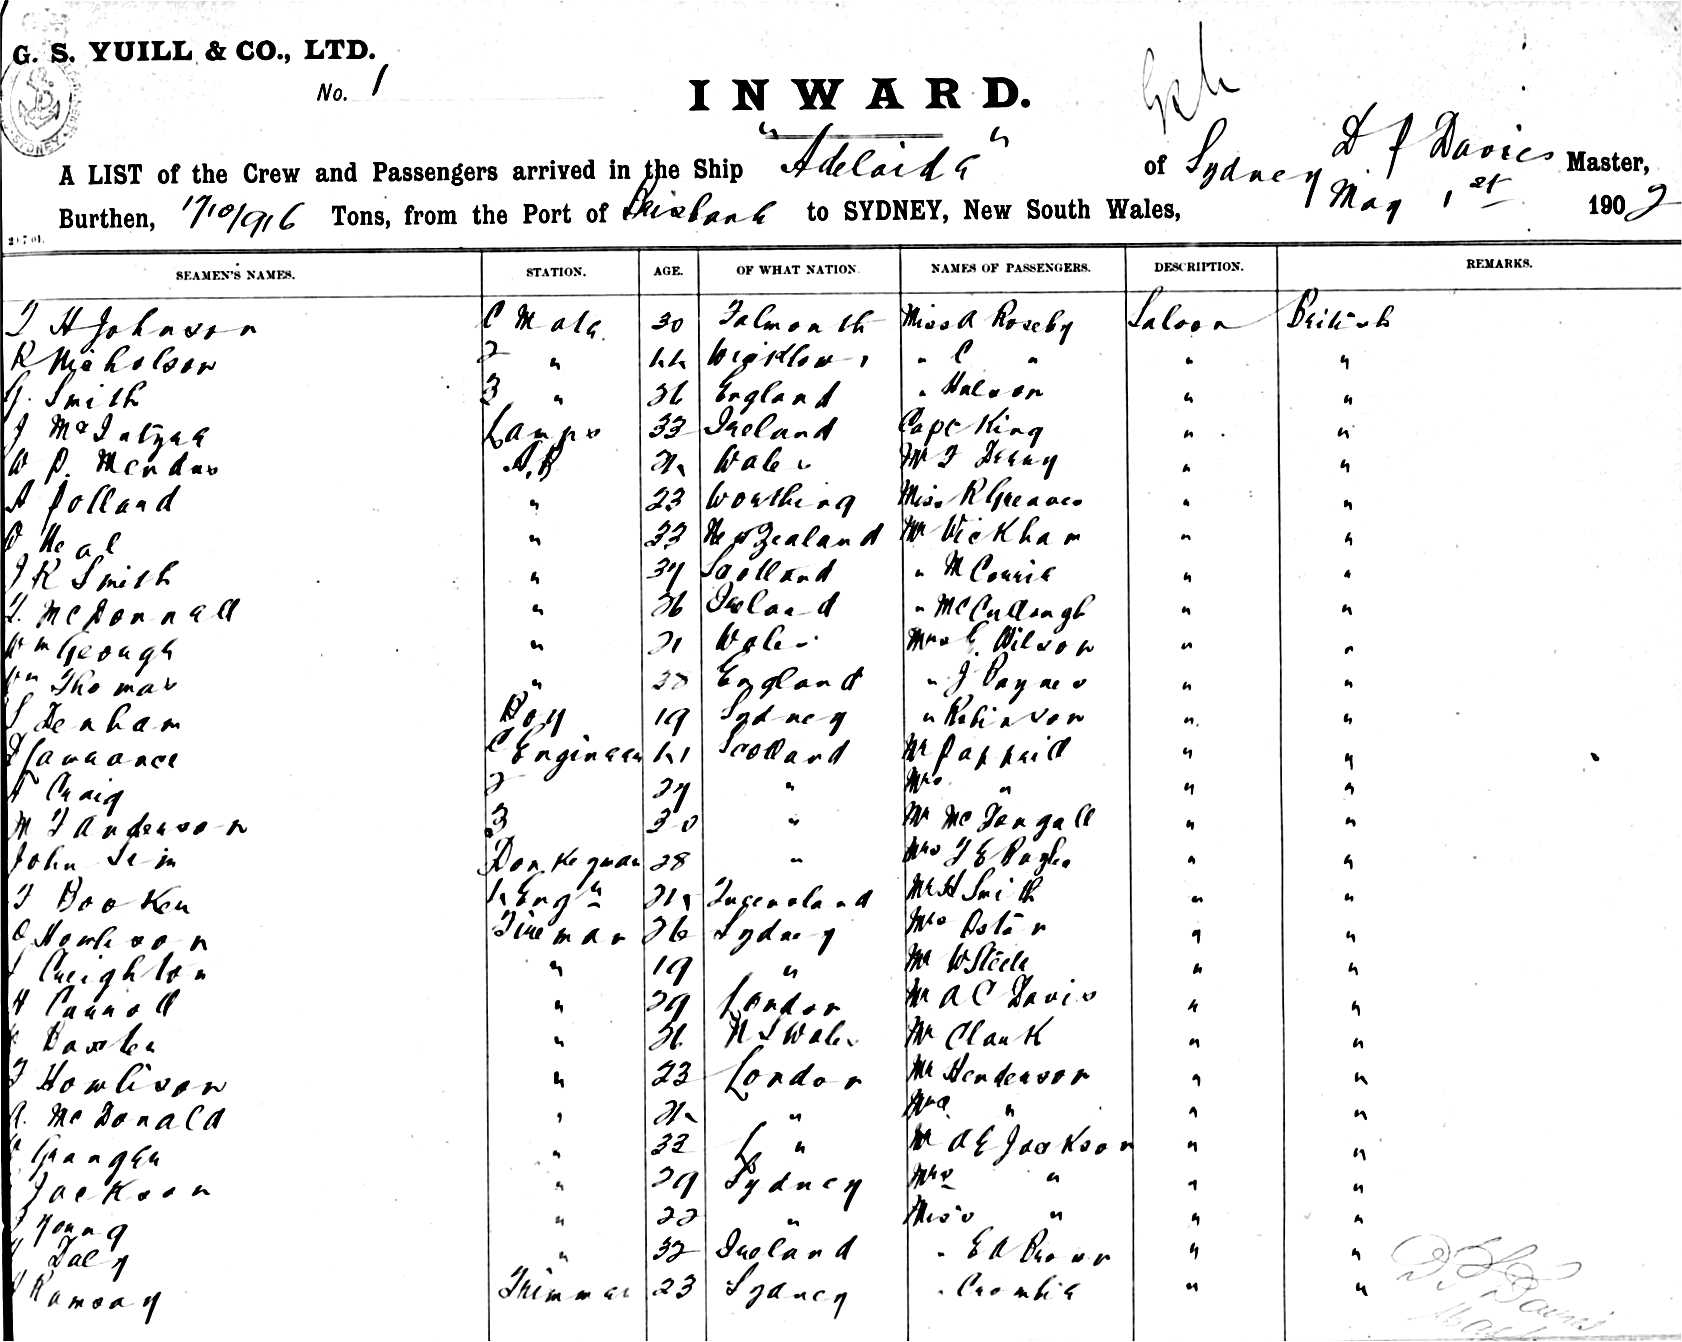 G. S. YUILL & CO., LTD.
No. 1
INWARD.
A LIST of the Crew and Passengers arrived in the Ship "Adelaide" of Sydney D J Davies Master,
Burthen, 1710/916 Tons, from the Port of Brisbane to SYDNEY, New South Wales, May 1st 1902
SEAMEN'S NAMES. STATION. AGE. OF WHAT NATION NAMES OF PASSENGERS. DESCRIPTION. REMARKS.
T H Johnson C Mate 30 Falmouth Miss A Roseby Saloon British
R Nicholson 2 " 44 " C " " "
G. Smith 3 " 26 England " " "
J Lamps 33 Ireland Capt King " "
W P. A.B 24 Wales Mr T " "
A Polland " 23 Worthing Miss R Greaves " "
Neal " 33 New Zealand Mr Wickham " "
J R Smith " 37 Scotland " " "
T. McDonnell " 26 Ireland " McCullough " "
Wm Geough " 21 Wales Mrs E Wilson " "
Wm Thomas " 38 England " J Baynes " "
S Denham Boy 19 Sydney " Robinson " "
Lawrance C Engineer 41 Scotland Mr " "
A Craig 2 27 " Mrs " " "
M T Anderson 3 30 " Mr McDougall " "
John Sim Donkeyman 28 " Mrs T E " "
T Booker 4 Engr 24 Queensland Mr H Smith " "
Howleson Fireman 26 Sydney Mrs " "
Creighton " 19 " Mr W Steele " "
H Carroll " 29 London Mr A C Davis " "
Baxter " 26 N S Wales Mr Clark " "
T Howlison " 23 London Mr Henderson " "
A. McDonald " 24 " Mrs " " "
Granger " 32 " Mr A E Jackson " "
Jackson " 29 Sydney Mrs " " "
Young " 22 " Miss " " "
Daly " 32 Ireland " E A Brown " "
Ramsay Trimmer 23 Sydney " Crombie " "
D J Davies